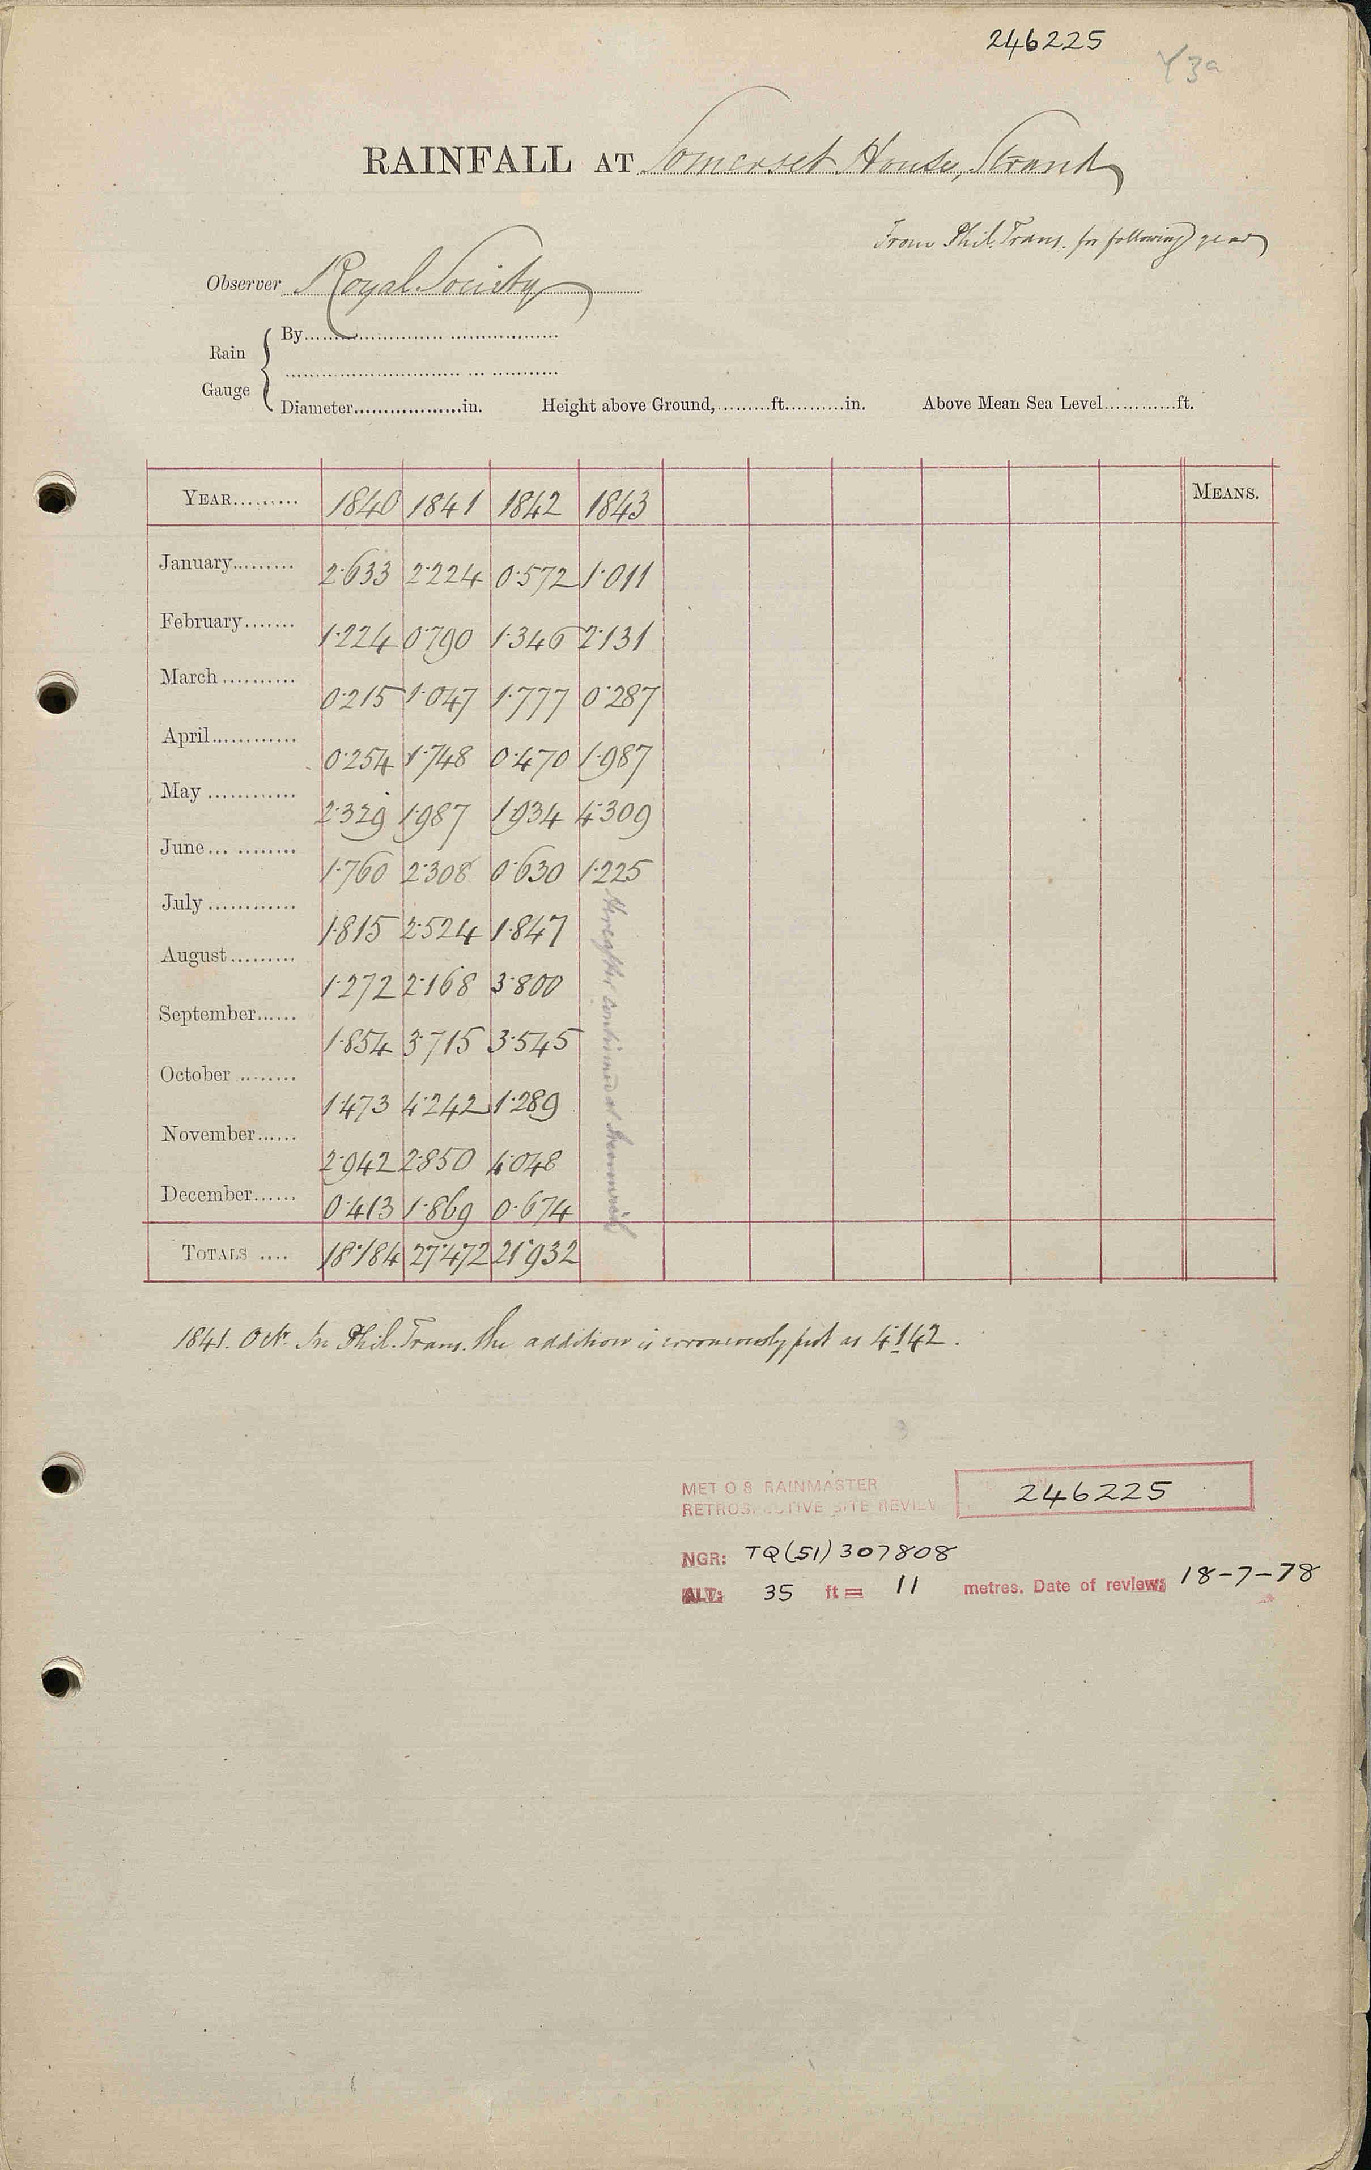 246225
Y3a
RAINFALL AT Somerset House, Strand
From Phil. Trans. for following year
Observer Royal Society
Rain Gauge
By
Diameter in. Height above Ground, ft. in. Above Mean Sea Level ft.
YEAR 1840 1841 1842 1843 MEANS.
January 2.633 2.224 0.572 1.011
February 1.224 0.790 1.346 2.131
March 0.215 1.047 1.777 0.287
April 0.254 1.748 0.470 1.987
May 2.329 1.987 1.934 4.309
June 1.760 2.308 0.630 1.225
July 1.815 2.524 1.847
August 1.272 2.168 3.800
September 1.854 3.715 3.545
October 1.473 4.242 1.289
November 2.942 2.850 4.048
December 0.413 1.869 0.674
thereafter continued at Greenwich
TOTALS 18.184 27.472 21.932
1841. Oct. In Phil. Trans. the addition is erroneously put as 4.142.
MET O 8 RAINMASTER
RETROSPECTIVE SITE REVIEW 246225
NGR: TQ(51)307808
ALT: 35 ft = 11 metres. Date of review: 18-7-78